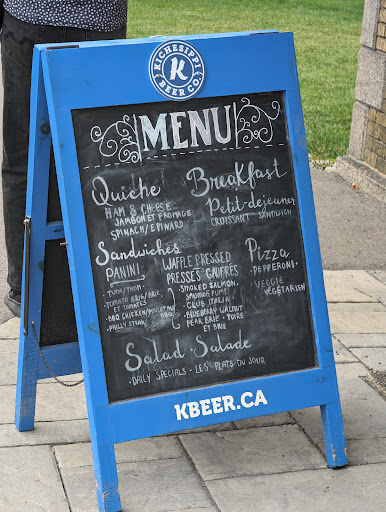 KICHESIPPI
K
BEER CO.
MENU
Quiche
HAM & CHEESE
JAMBON ET FROMAGE
SPINACH/EPINARD
Breakfast
Petit-dejeuner
CROISSANT SANDWICH
Sandwiches
PANINI
• TUNA/THON •
• TOMATO BRIE/BRIE
ET TOMATES
• BBQ CHICKEN/POULET BBQ
• PHILLY STEAK
WAFFLE PRESSED
PRESSÉS GAUFRÉS
• SMOKED SALMON/
SAUMON FUMÉ
• CLUB ITALIA •
• BLUEBERRY WALNUT
PEAR BRIE • POIRE
ET BRIE
Pizza
• PEPPERONI •
• VEGGIE
VEGETARIEN
Salad • Salade
• DAILY SPECIALS - LES PLATS DU JOUR
KBEER.CA